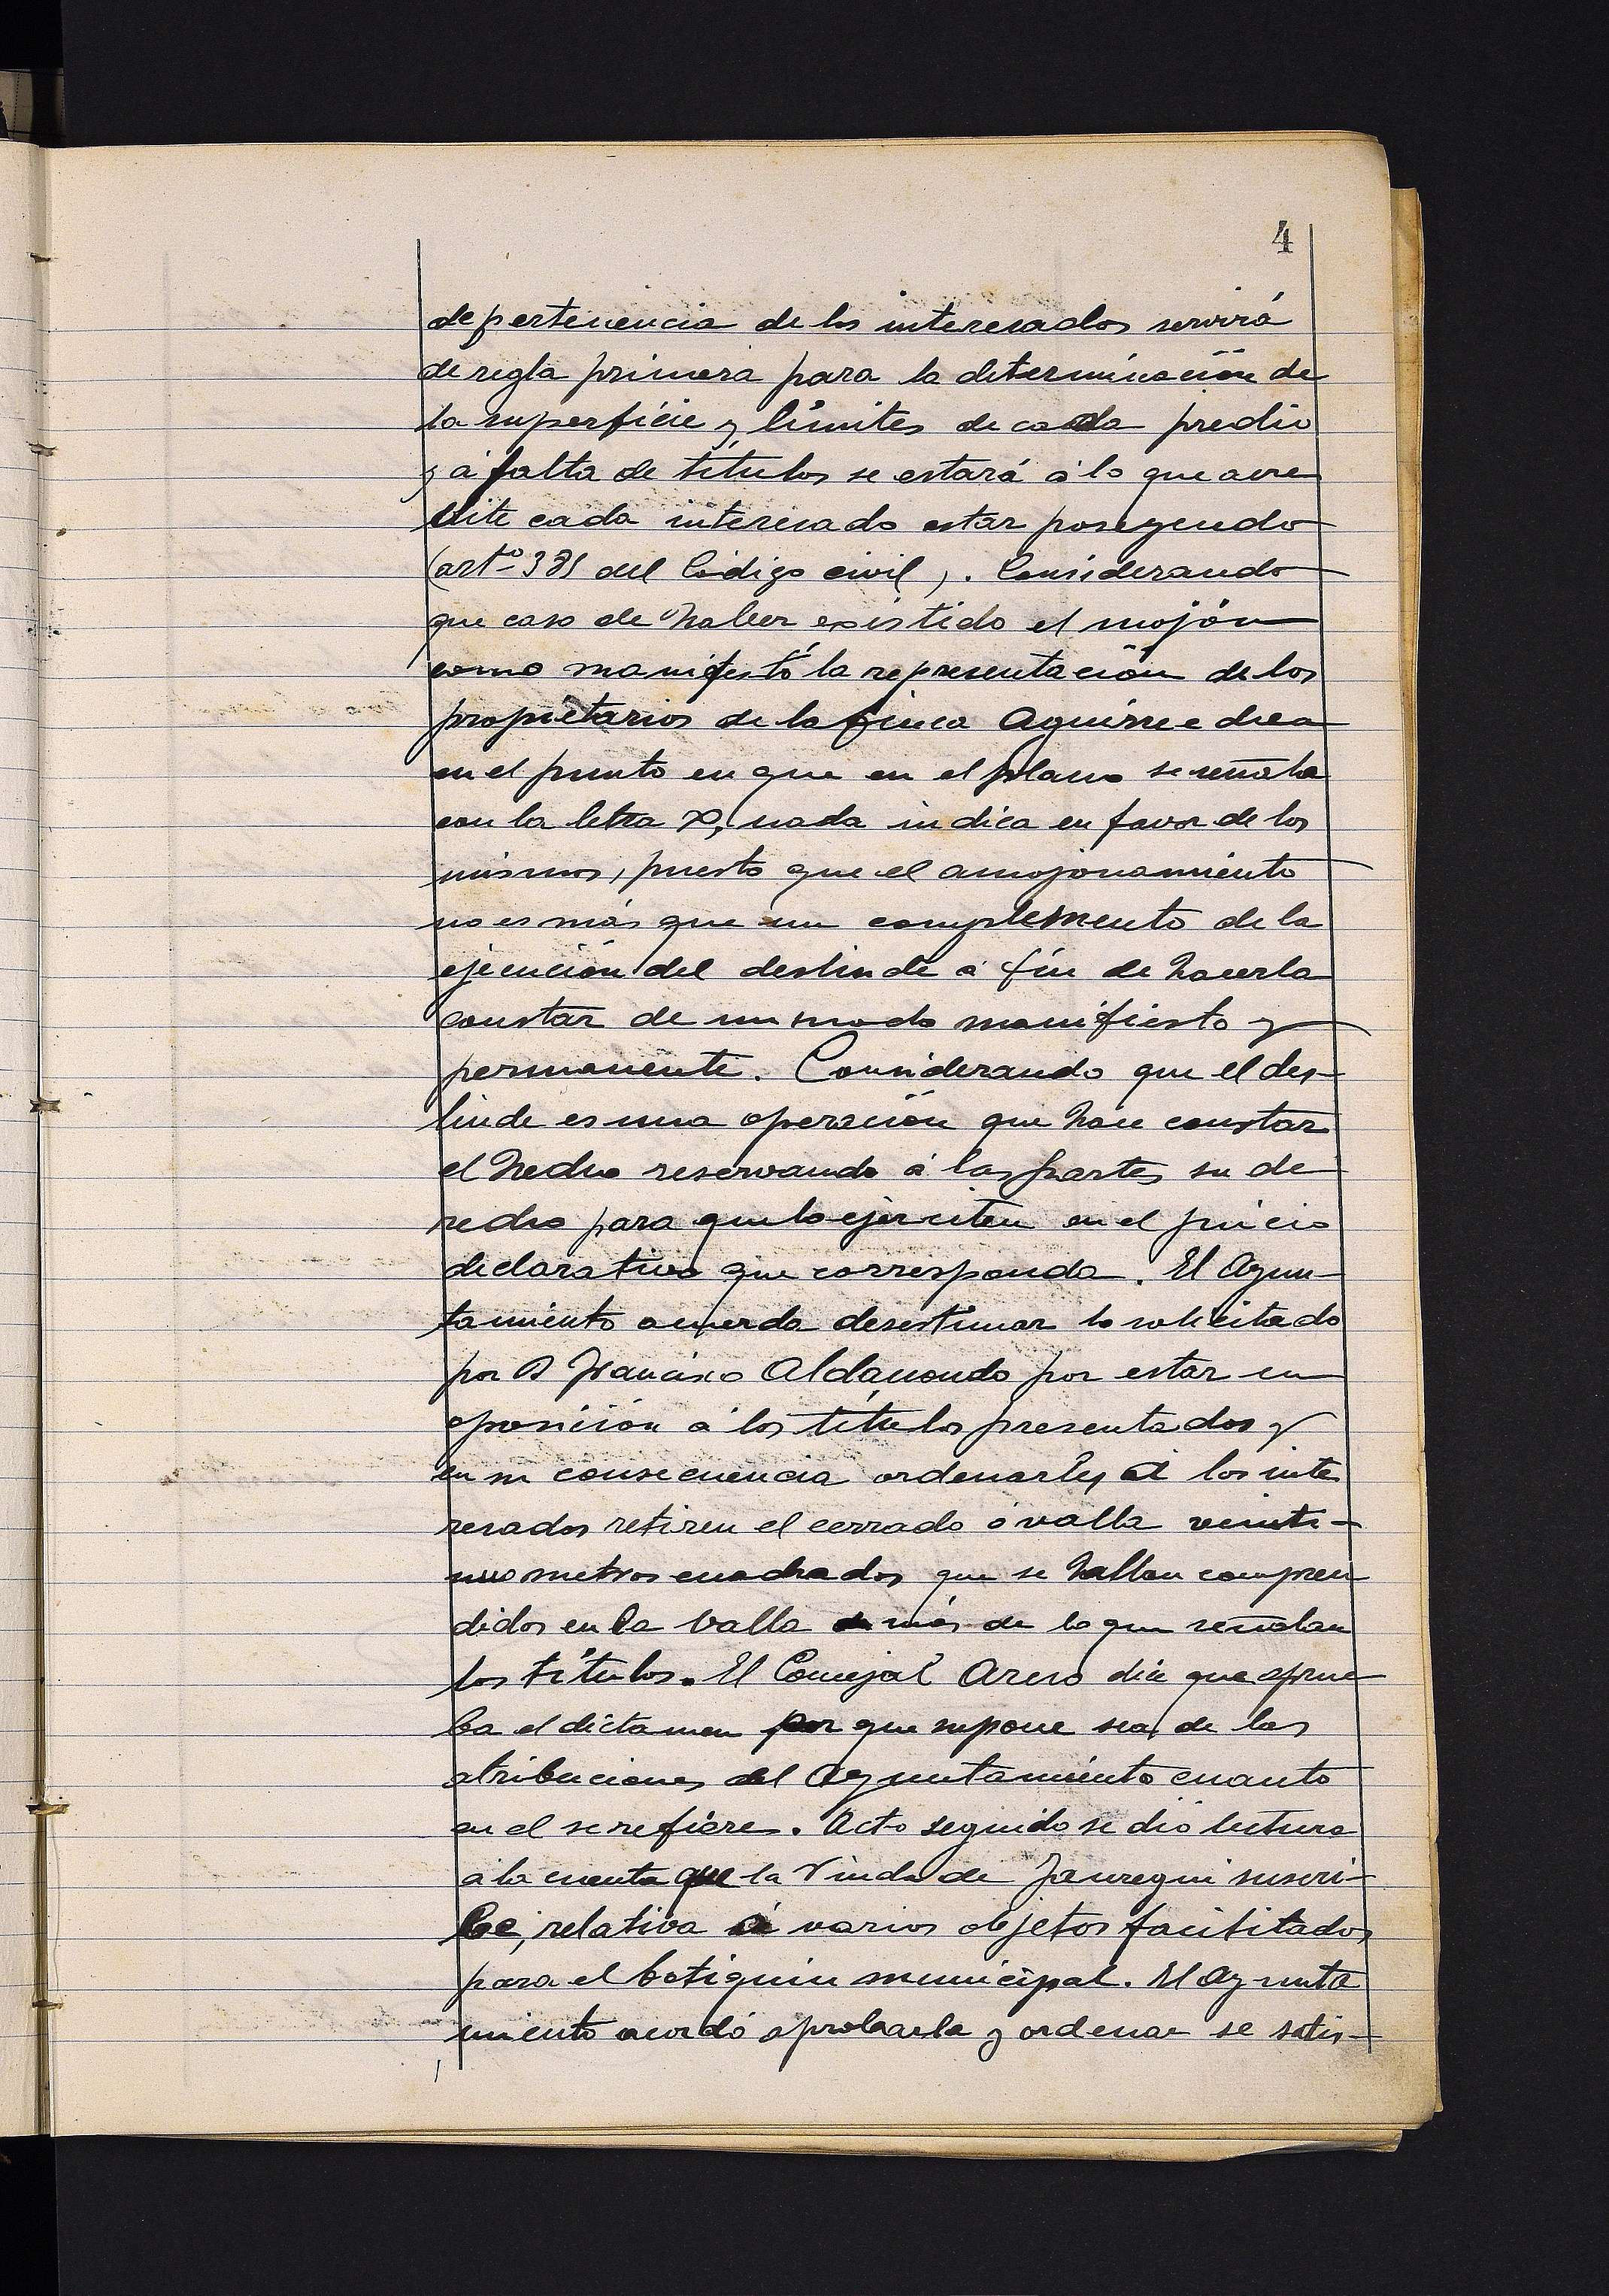 4
de pertenencia de los interesados servirá
de regla primera para la determinación de
la superficie y límites de cada predio
y á falta de títulos se estará á lo que acre
dite cada interesado estar poseyendo
(artº 385 del Código civil). Considerando
que caso de haber existido el mojón
como manifestó la representación de los
propietarios de la finca Aguirre echea
en el punto en que en el plano se señala
con la letra X, nada indica en favor de los
mismos, puesto que el amojonamiento
no es más que un complemento de la
ejecución del deslinde á fín de hacerla
constar de un modo manifiesto y
permanente. Considerando que el des-
linde es una operación que hace constar
el hecho reservando á las partes su de
recho para que lo ejerciten en el juicio
declarativo que corresponda. El Ayun-
tamiento acuerda desestimar lo solicitado
por D Francisco Aldanondo por estar en
oposición á los títulos presentados y
en su consecuencia ordenarles á los inte
resados retiren el cerrado ó valla veinti-
metros cuadrados que se hallan compren
didos en la valla más de lo que señalan
los títulos. El Concejal Areso dice que aprue
ba el dictamen por que supone sea de las
atribuciones del Ayuntamiento cuanto
en el se refiere. Acto seguido se dió lectura
á la cuenta que la Viuda de Jauregui suscri-
be, relativa á varios objetos facilitados
para el botiquin municipal. El Ayunta
miento acordó aprobarla y ordenar se satis-